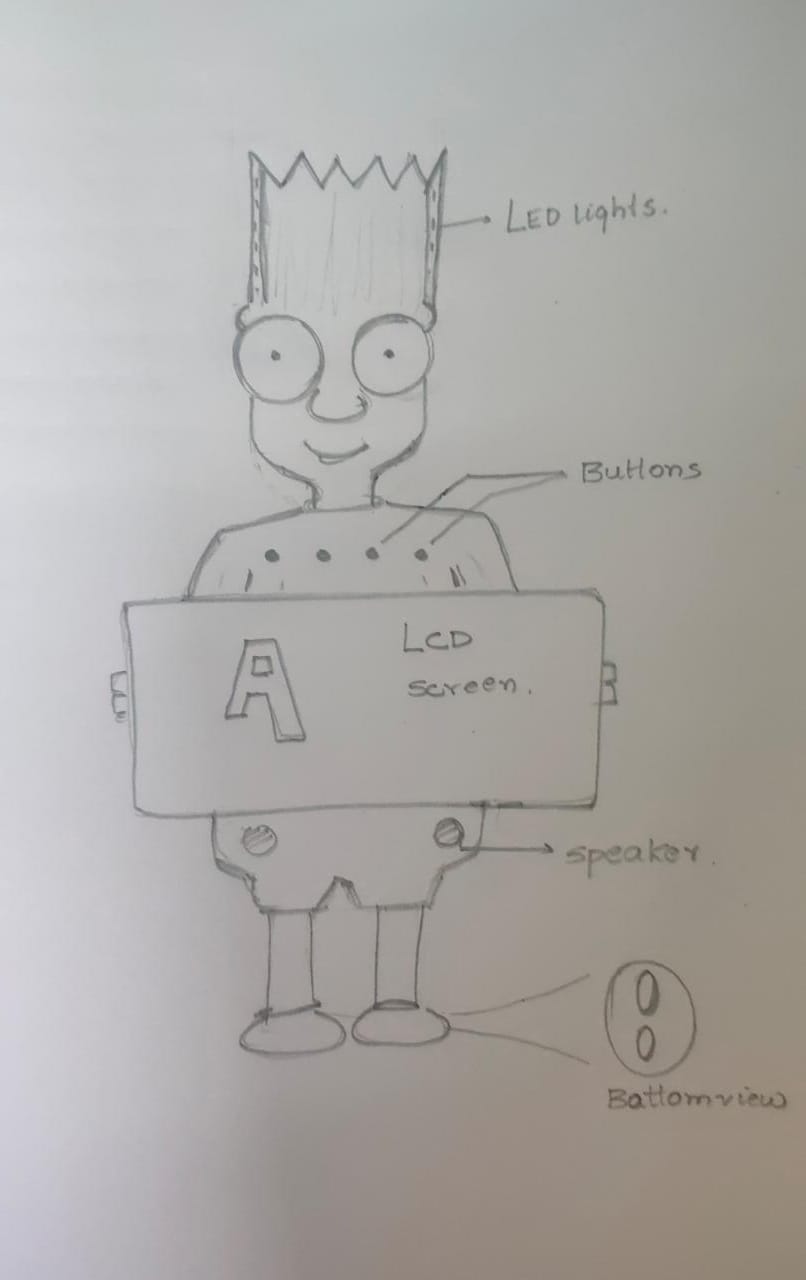 LED lights.
Buttons
A
LCD
screen.
speaker.
Battomview